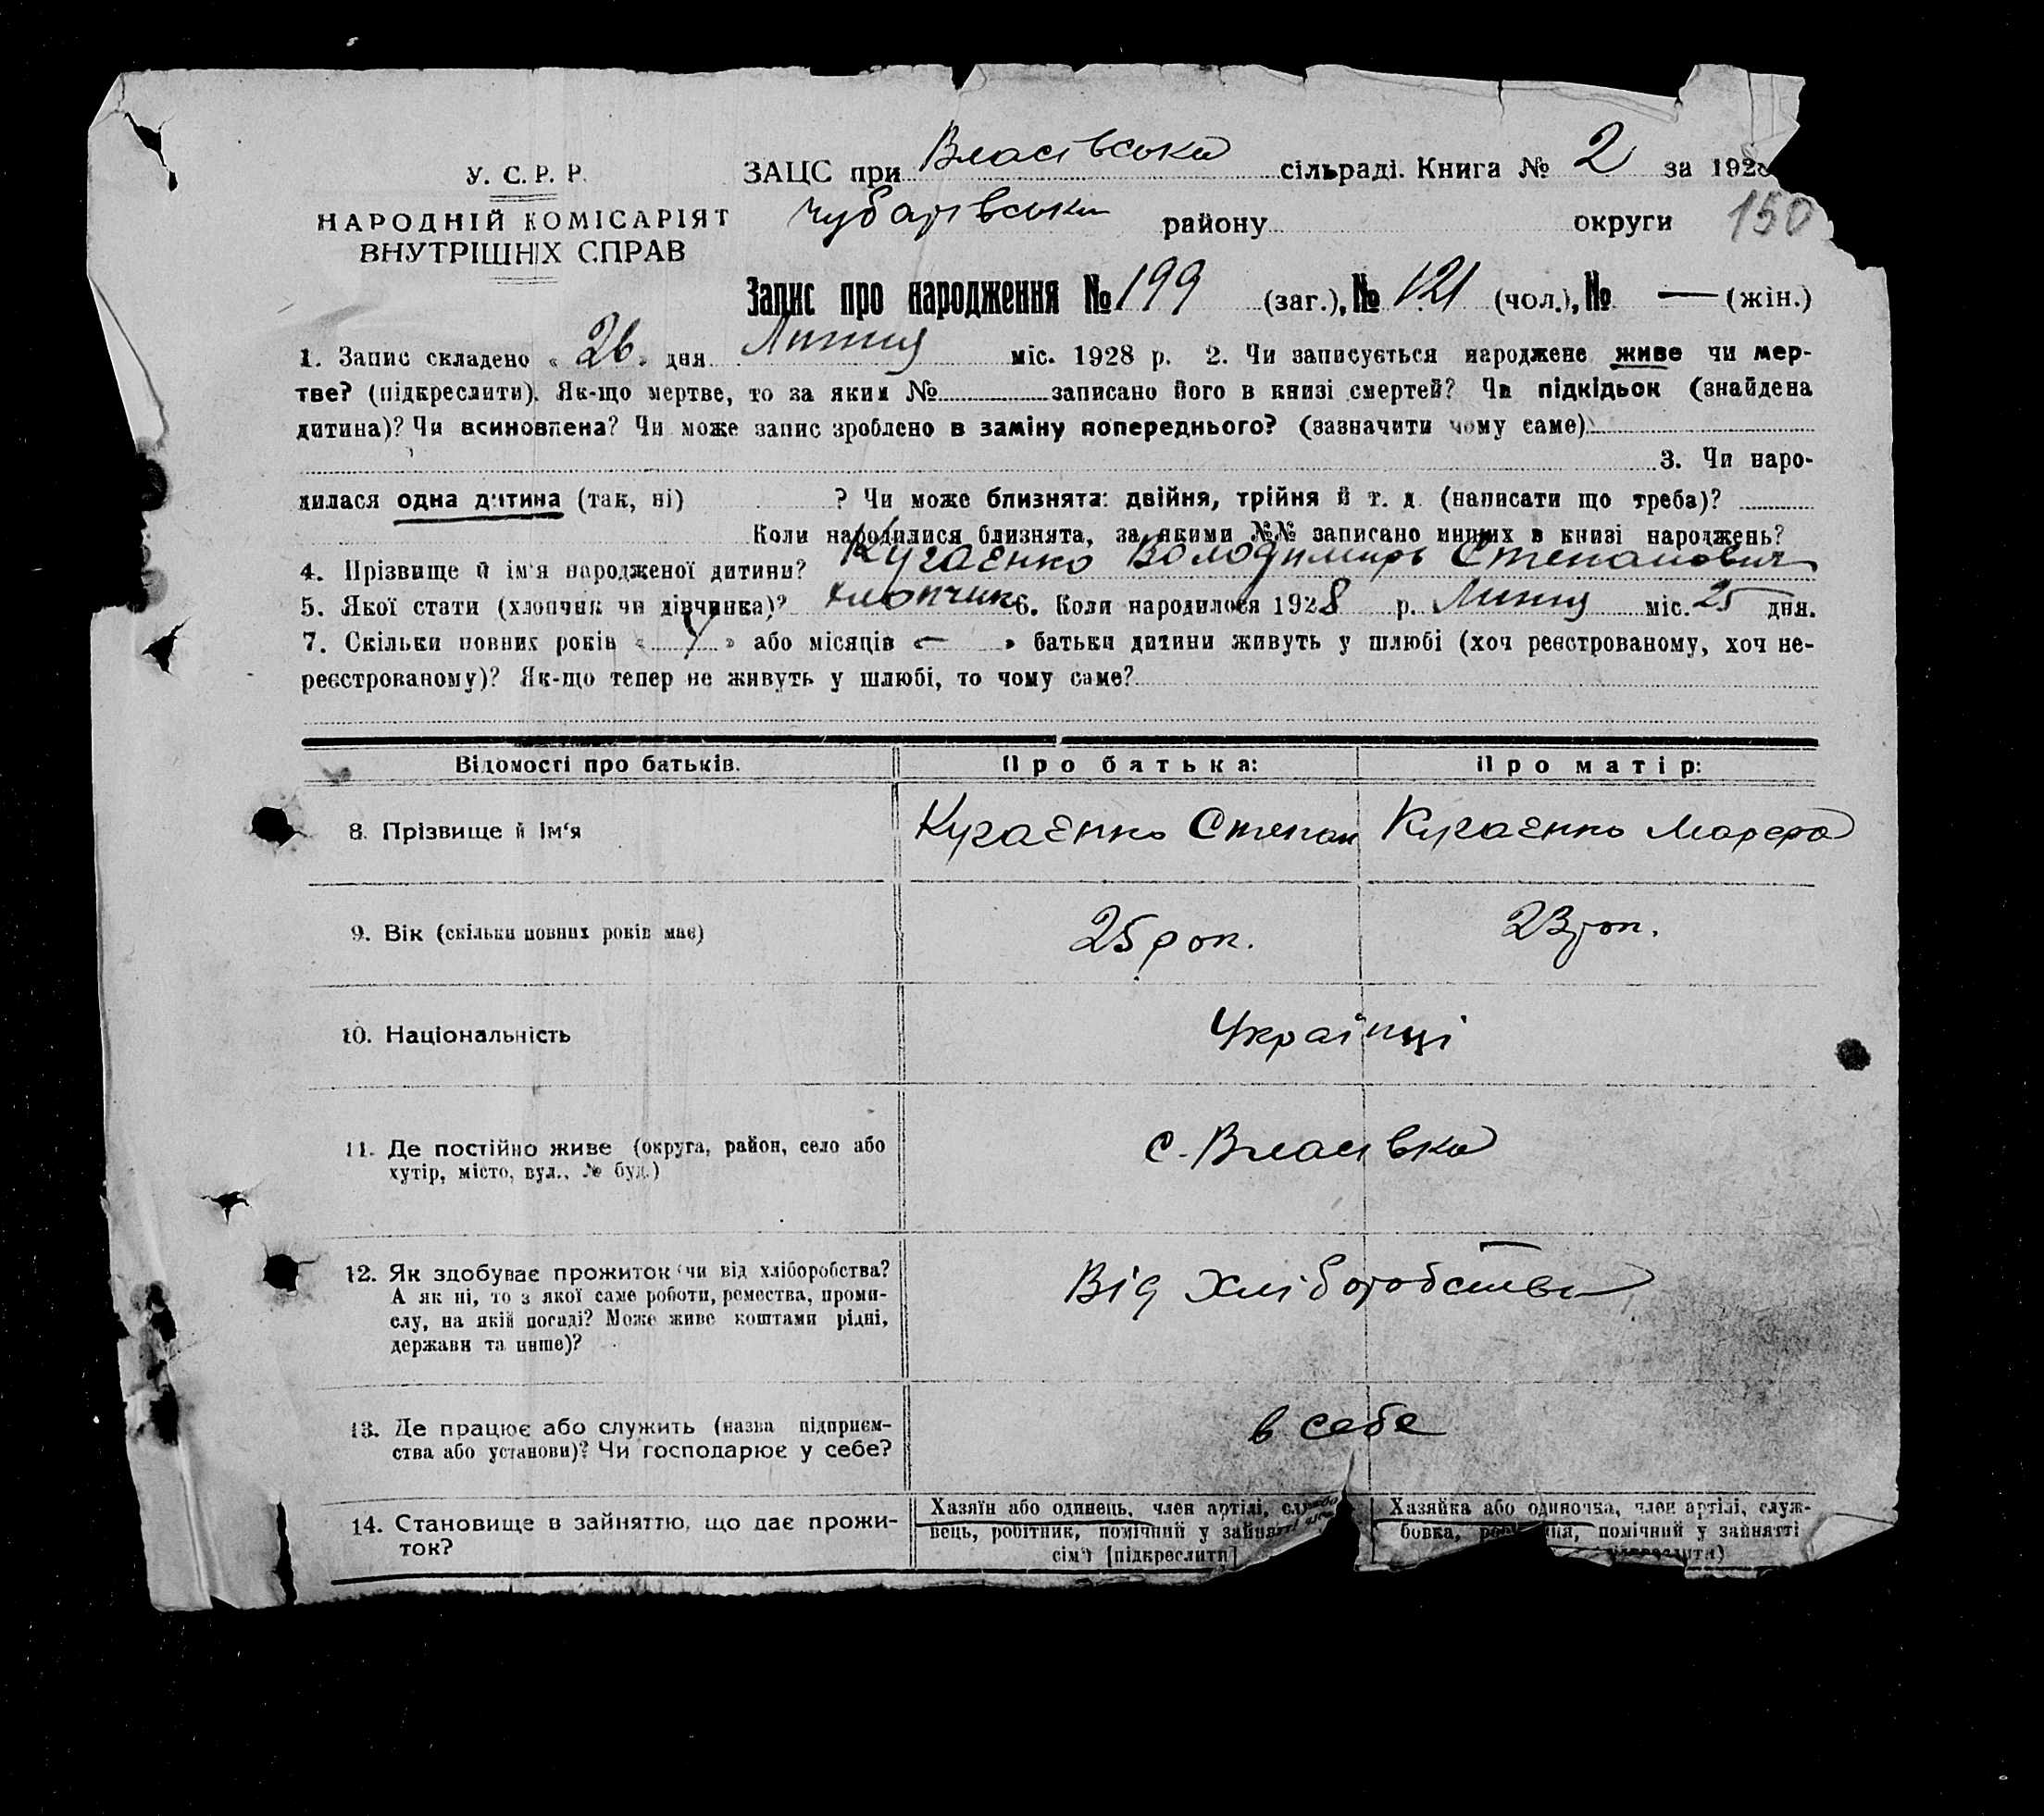 У. С. Р. Р.
НАРОДНІЙ КОМІСАРІЯТ
ВНУТРІШНІХ СПРАВ
ЗАЦС при Власівська сільраді. Книга № 2 за 1928
Чубарівськи району округи 150
Запис про народження № 199 (заг.), № 121 (чол.), № — (жін.)
1. Запис складено « 26 » дня Липня міс. 1928 р. 2. Чи записується народжене живе чи мер-
тве? (підкреслити). Як-що мертве, то за яким № записано його в книзі смертей? Чи підкідьок (знайдена
дитина)? Чи всиновлена? Чи може запис зроблено в заміну попереднього? (зазначити чому саме)
3. Чи наро-
дилася одна дитина (так, ні) ? Чи може близнята: двійня, трійня й т. д. (написати що треба)?
Коли народилися близнята, за якими №№ записано инших в книзі народжень?
4. Прізвище й ім'я народженої дитини? Кугаєнко Володимирь Степанович
5. Якої стати (хлопчик чи дівчинка)? хлопчик 6. Коли народилося 1928 р. Липня міс. 25 дня.
7. Скільки повних років « » або місяців « — » батьки дитини живуть у шлюбі (хоч реєстрованому, хоч не-
реєстрованому)? Як-що тепер не живуть у шлюбі, то чому саме?
Відомості про батьків. Про батька: Про матір:
8. Прізвище й ім'я Кугаєнко Степан Кугаєнко Марфа
9. Вік (скільки повних років має) 25 рок. 23 рок.
10. Національність Українці
11. Де постійно живе (округа, район, село або
хутір, місто, вул., № буд.) с. Власівка
12. Як здобуває прожиток (чи від хліборобства?
А як ні, то з якої саме роботи, ремества, проми-
слу, на якій посаді? Може живе коштами рідні,
держави та инше)? Від хліборобства
13. Де працює або служить (назва підприєм-
ства або установи)? Чи господарює у себе? в себе
14. Становище в зайняттю, що дає прожи-
ток?
Хазяїн або одинець, член артілі,
вець, робітник, помічний у
сім'ї [підкреслити]
Хазяйка або одиночка, член артілі, служ-
бовка, помічний у зайнятті